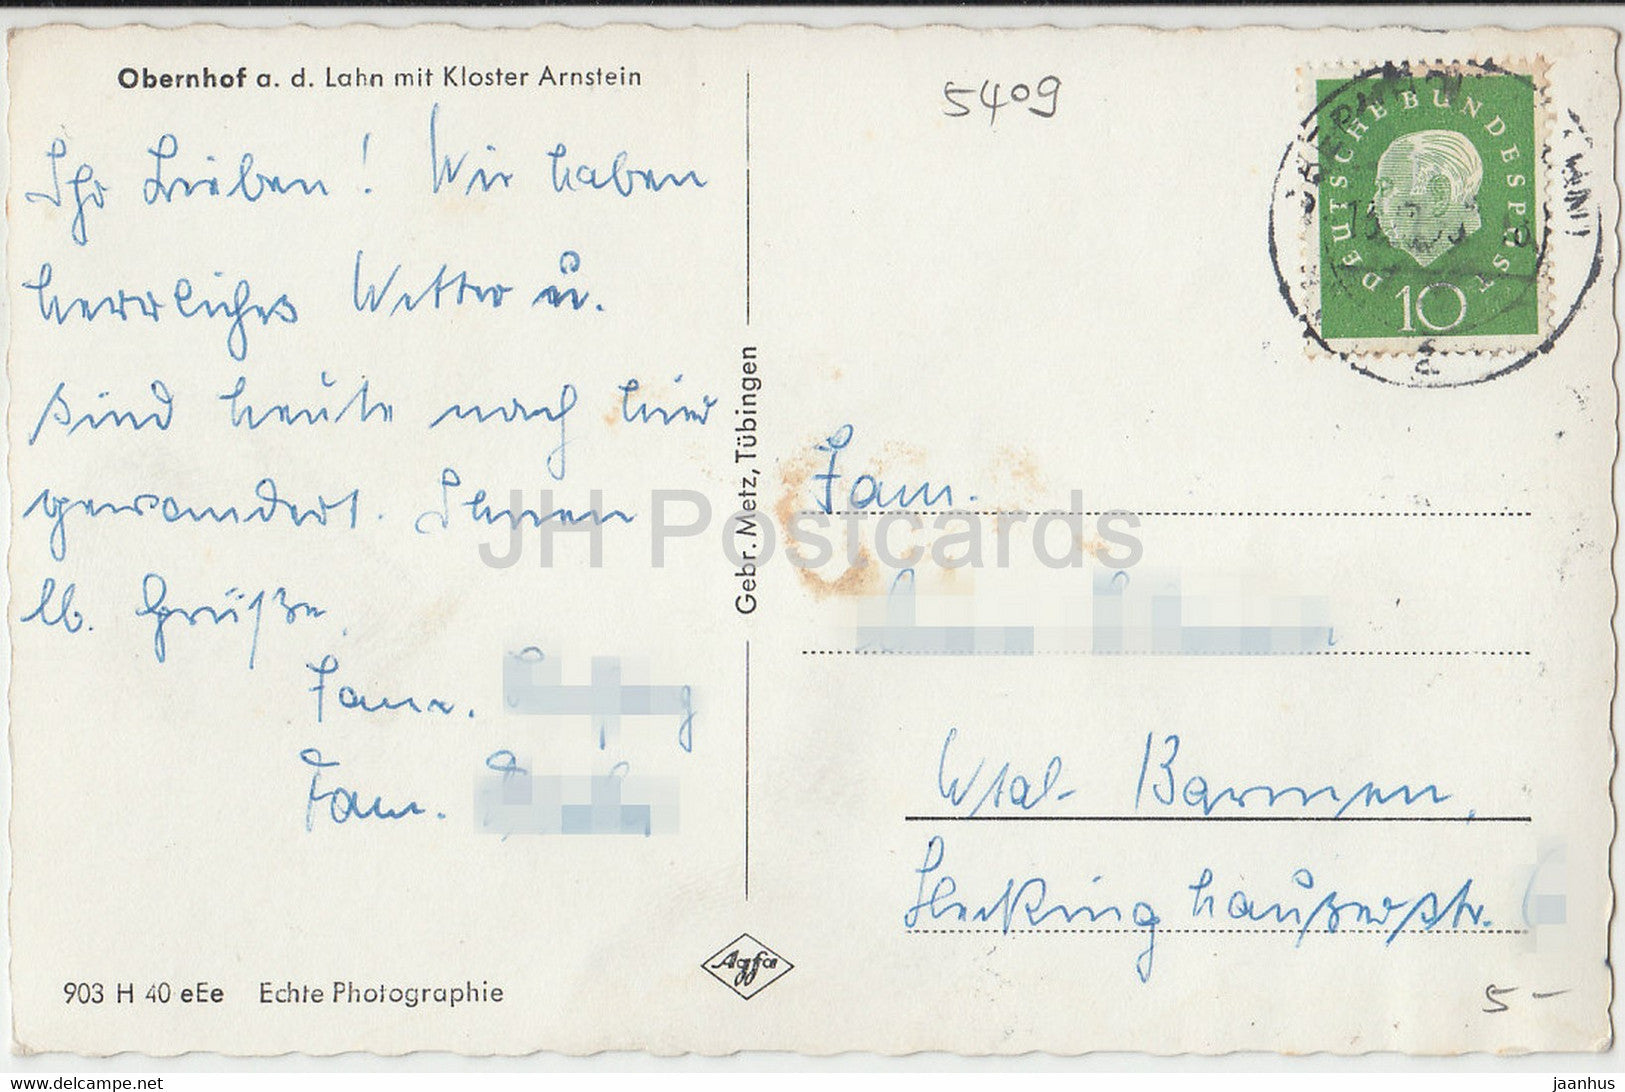 Obernhof a. d. Lahn mit Kloster Arnstein
Ihr Lieben! Wir haben
herrliches Wetter u.
sind heute nach hier
gewandert. Ihnen
lb. Grüße
Fam.
Fam.
903 H 40 eEe Echte Photographie
Gebr. Metz, Tübingen
Agfa
5409
DEUTSCHE BUNDESPOST
10
Fam.
Wtal-Barmen,
Heckinghauserstr.
5-
JH Postcards
delcampe.net
jaanhus